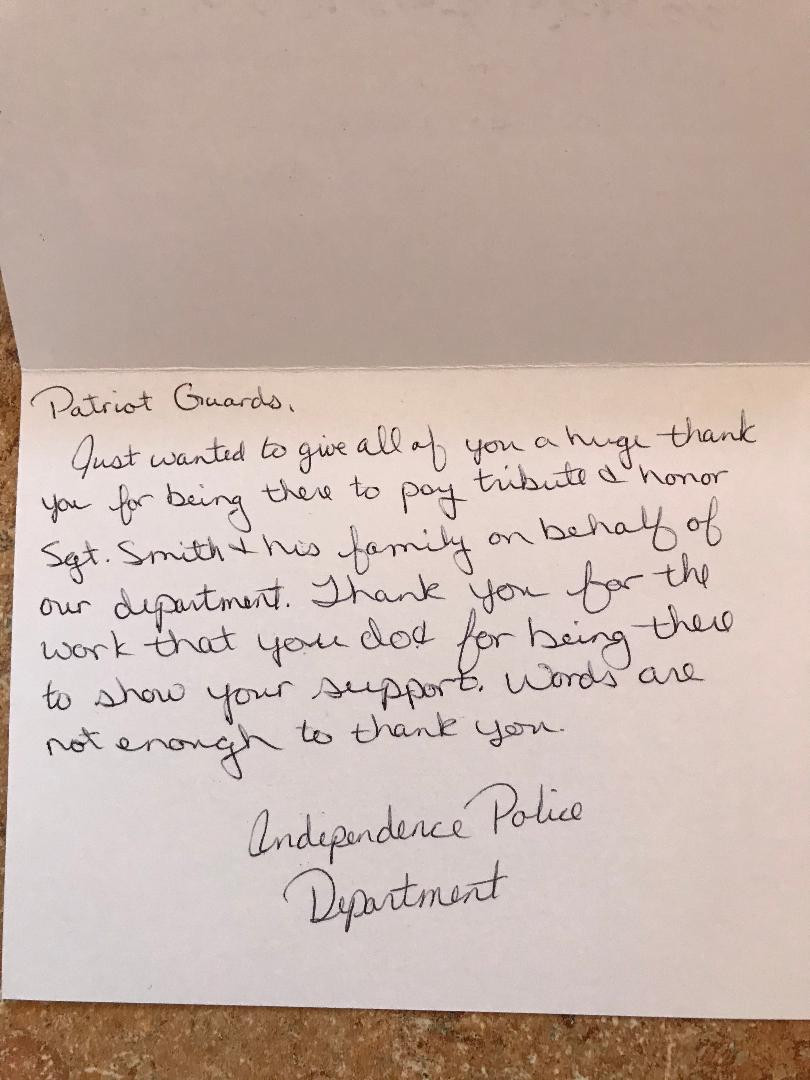 Patriot Guards,
Just wanted to give all of you a huge thank
you for being there to pay tribute & honor
Sgt. Smith & his family on behalf of
our department. Thank you for the
work that you do & for being there
to show your support. Words are
not enough to thank you.
Independence Police
Department